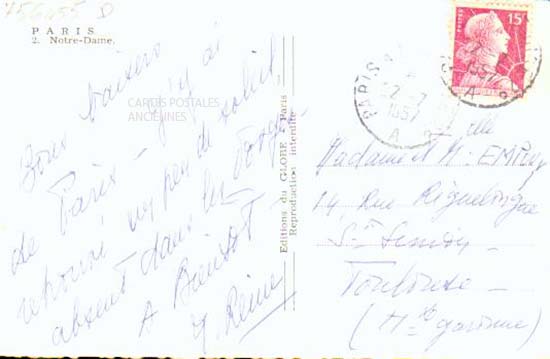 756455 D
PARIS
2. Notre-Dame.
Bons baisers
de Paris - j'y ai
retrouvé un peu de soleil
absent dans les Vosges
A Bientôt
Y. Reine
CARTES POSTALES
ANCIENNES
Editions du GLOBE - Paris
Reproduction interdite
POSTES
15F
PARIS
2-7
1957
A
Madame et M. EMERY
14, Rue Riquelingue
St Simon
Toulouse -
(Hte Garonne)